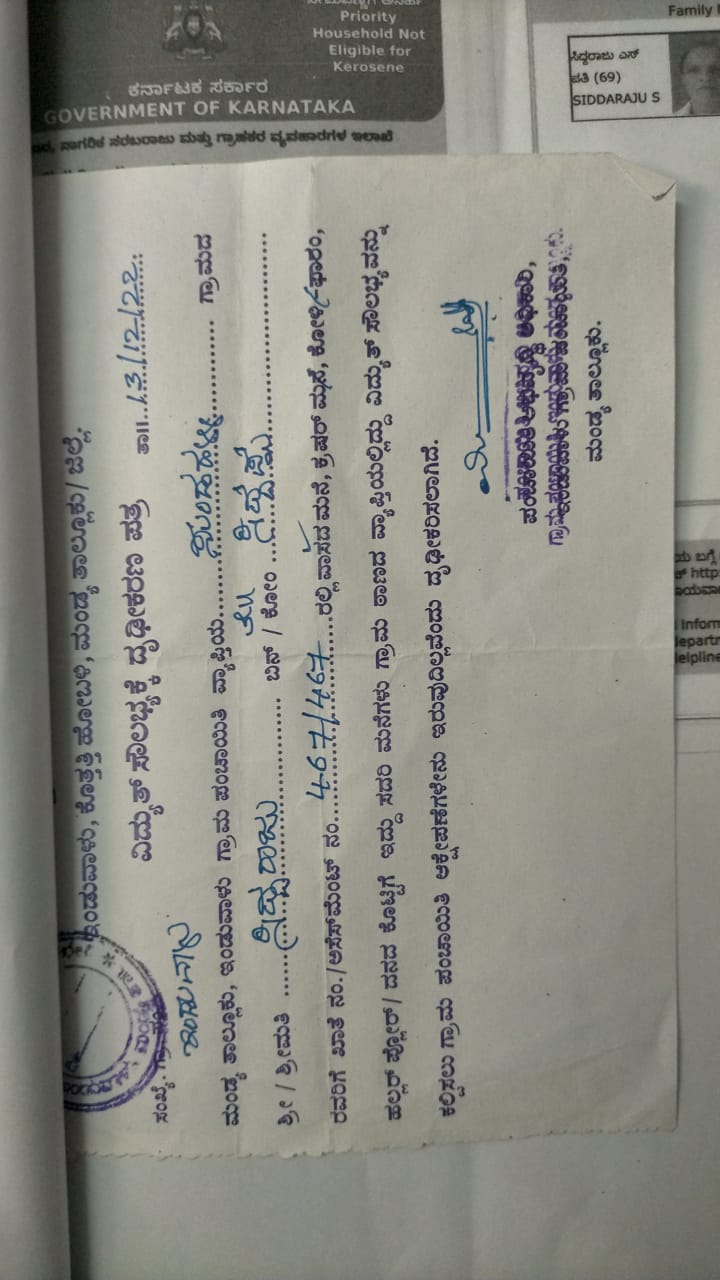 Priority
Household Not
Eligible for
Kerosene
ಕರ್ನಾಟಕ ಸರ್ಕಾರ
GOVERNMENT OF KARNATAKA
ನಾಗರಿಕ ಸರಬರಾಜು ಮತ್ತು ಗ್ರಾಹಕರ ವ್ಯವಹಾರಗಳ ಇಲಾಖೆ
Family
ಸಿದ್ದರಾಜು ಎಸ್
ಪತಿ (69)
SIDDARAJU S
ಇಂಡುವಾಳು, ಕೊತ್ತತ್ತಿ ಹೋಬಳಿ, ಮಂಡ್ಯ ತಾಲ್ಲೂಕು / ಜಿಲ್ಲೆ.
ವಿದ್ಯುತ್ ಸೌಲಭ್ಯಕ್ಕೆ ದೃಢೀಕರಣ ಪತ್ರ
ಸಂಖ್ಯೆ: ತಾ॥..13/12/22..
ಇಂಡುವಾಳು
ಮಂಡ್ಯ ತಾಲ್ಲೂಕು, ಇಂಡುವಾಳು ಗ್ರಾಮ ಪಂಚಾಯಿತಿ ವ್ಯಾಪ್ತಿಯ........ ಗ್ರಾಮದ
ಶ್ರೀ / ಶ್ರೀಮತಿ ......ಸಿದ್ದರಾಜು........ ಬಿನ್ / ಕೋಂ ........
ರವರಿಗೆ ಖಾತೆ ನಂ./ಅಸೆಸ್‌ಮೆಂಟ್ ನಂ....467/467....ರಲ್ಲಿ ವಾಸದ ಮನೆ, ಕ್ರಷರ್ ಮನೆ, ಕೋಳಿ ಫಾರಂ,
ಹಲ್ಲರ್ ಫ್ಲೋರ್ / ದನದ ಕೊಟ್ಟಿಗೆ ಇದ್ದು ಸದರಿ ಮನೆಗಳು ಗ್ರಾಮ ಠಾಣದ ವ್ಯಾಪ್ತಿಯಲ್ಲಿದ್ದು ವಿದ್ಯುತ್ ಸೌಲಭ್ಯವನ್ನು
ಕಲ್ಪಿಸಲು ಗ್ರಾಮ ಪಂಚಾಯಿತಿ ಆಕ್ಷೇಪಣೆಗಳೇನು ಇರುವುದಿಲ್ಲವೆಂದು ದೃಢೀಕರಿಸಲಾಗಿದೆ.
ಪಂಚಾಯಿತಿ ಅಭಿವೃದ್ಧಿ ಅಧಿಕಾರಿ,
ಮಂಡ್ಯ ತಾಲ್ಲೂಕು.
ಯ ಬಗ್ಗೆ
http
Inform
departm
elpline